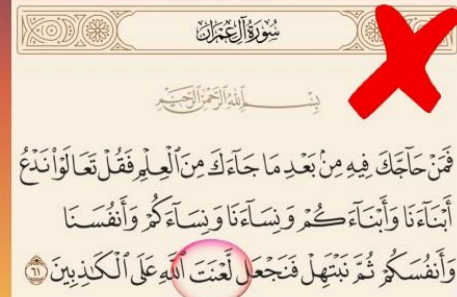 سُورَةُ آلِ عِمْرَانَ
بِسْمِ اللَّهِ الرَّحْمَٰنِ الرَّحِيمِ
فَمَنْ حَآجَّكَ فِيهِ مِنۢ بَعْدِ مَا جَآءَكَ مِنَ ٱلْعِلْمِ فَقُلْ تَعَالَوْا۟ نَدْعُ
أَبْنَآءَنَا وَأَبْنَآءَكُمْ وَنِسَآءَنَا وَنِسَآءَكُمْ وَأَنفُسَنَا
وَأَنفُسَكُمْ ثُمَّ نَبْتَهِلْ فَنَجْعَل لَّعْنَتَ ٱللَّهِ عَلَى ٱلْكَـٰذِبِينَ ٦١